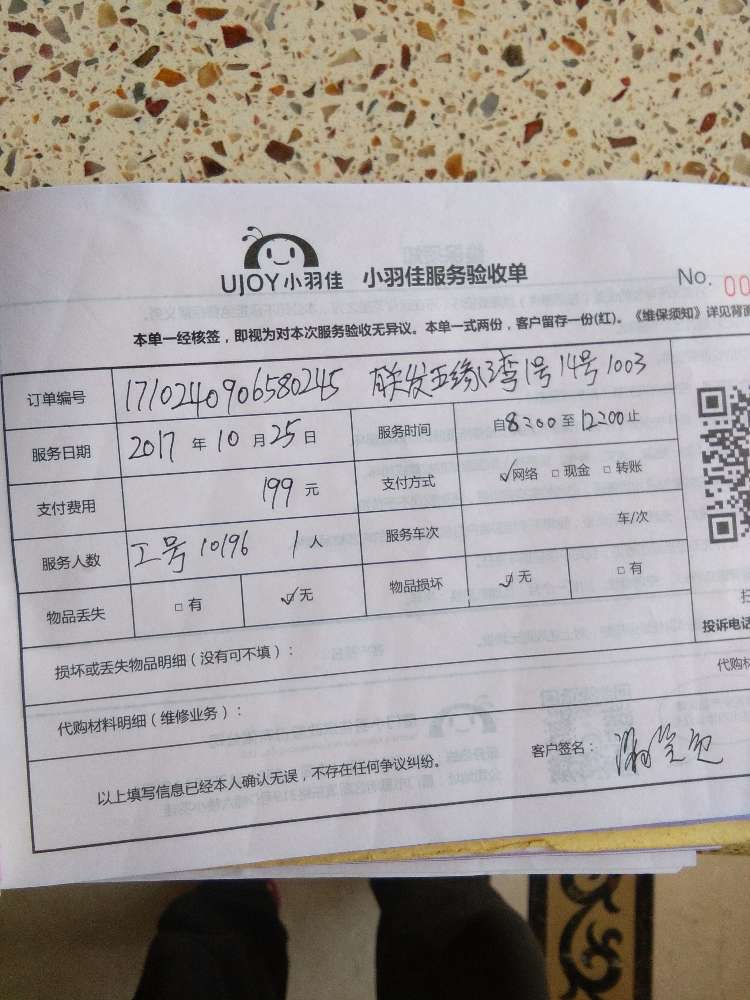 UJOY小羽佳 小羽佳服务验收单
No. 00
本单一经核签，即视为对本次服务验收无异议。本单一式两份，客户留存一份(红)。《维保须知》详见背面
订单编号 1710240906580245 联发五缘湾1号14号1003
服务日期 2017 年 10 月 25 日 服务时间 自8:00至12:00止
支付费用 199 元 支付方式 ✓网络 □现金 □转账
服务人数 工号10196 1人 服务车次 车/次
物品丢失 □有 ✓无 物品损坏 ✓无 □有
投诉电话
损坏或丢失物品明细（没有可不填）：
代购材
代购材料明细（维修业务）：
以上填写信息已经本人确认无误，不存在任何争议纠纷。 客户签名：